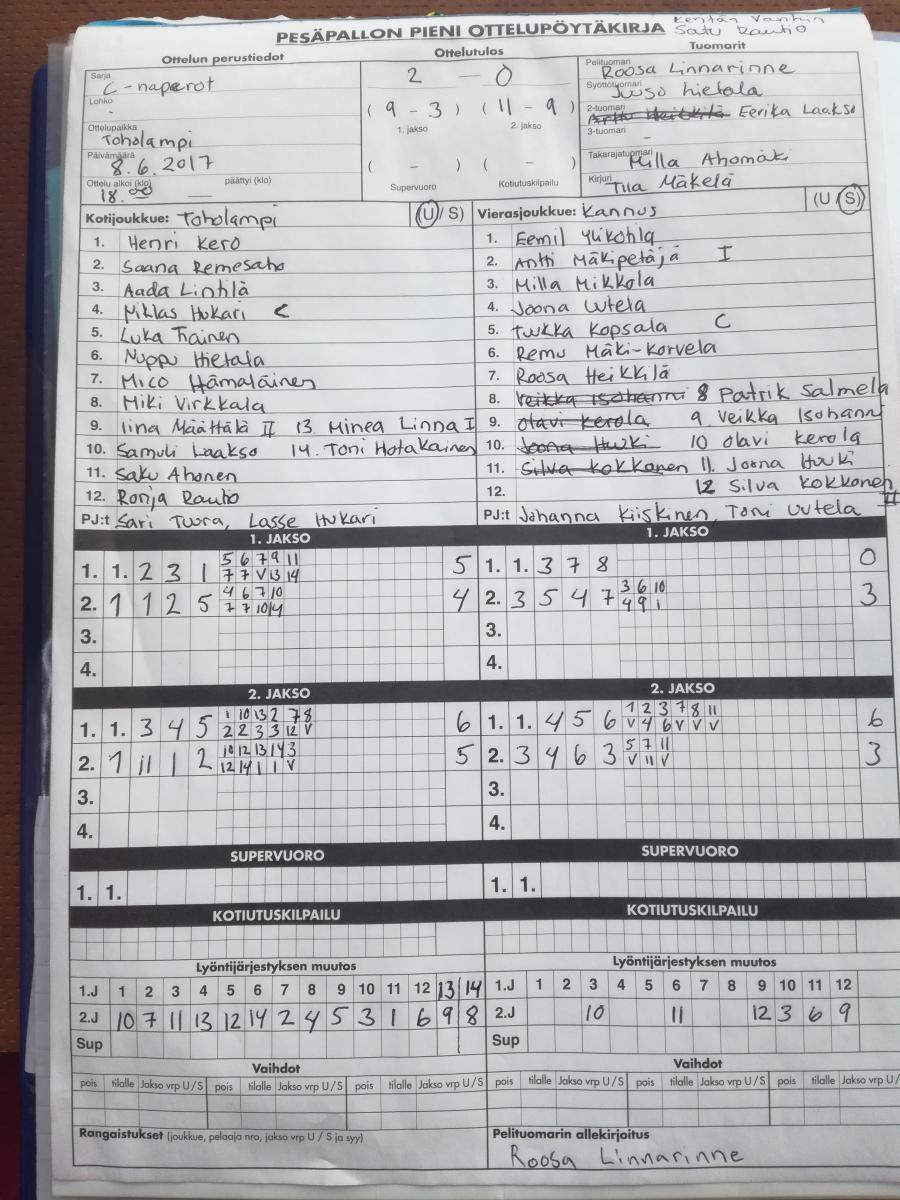 PESÄPALLON PIENI OTTELUPÖYTÄKIRJA
Kentän Vanhin
Satu Rautio
Ottelun perustiedot
Sarja
C-naperot
Lohko
-
Ottelupaikka
Toholampi
Päivämäärä
8.6.2017
Ottelu alkoi (klo) päättyi (klo)
18.00 —
Ottelutulos
2 - 0
( 9 - 3 ) ( 11 - 9 )
1. jakso 2. jakso
( - ) ( - )
Supervuoro Kotiutuskilpailu
Tuomarit
Pelituomari
Roosa Linnarinne
Syöttötuomari
Juuso Hietala
2-tuomari
Eerika Laakso
3-tuomari
-
Takarajatuomari
Milla Ahomäki
Kirjuri
Tiia Mäkelä
Kotijoukkue: Toholampi (U / S)
1. Henri Kero
2. Saana Remesaho
3. Aada Lintilä
4. Niklas Hukari C
5. Luka Trainen
6. Nuppu Hietala
7. Mico Hämäläinen
8. Miki Virkkala
9. Iina Määttälä II 13. Minea Linna I
10. Samuli Laakso 14. Toni Hotakainen
11. Saku Ahonen
12. Ronja Rautio
PJ:t Sari Tuura, Lasse Hukari
Vierasjoukkue: Kannus (U / S)
1. Eemil Ylikohla
2. Antti Mäkipetäjä I
3. Milla Mikkola
4. Joona Uutela
5. Tuukka Kopsala C
6. Remu Mäki-Korvela
7. Roosa Heikkilä
8. Veikka Isohanni 8 Patrik Salmela
9. Olavi Kerola 9. Veikka Isohanni
10. Joona Huuki 10 Olavi Kerola
11. Silva Kokkonen 11. Joona Huuki
12. 12 Silva Kokkonen II
PJ:t Johanna Kiiskinen, Toni Uutela
1. JAKSO
1. 1. 2 3 1 5 6 7 9 11 5
7 7 V 13 14
2. 1 1 2 5 4 6 7 10 4
7 7 10 14
3.
4.
1. JAKSO
1. 1. 3 7 8 0
2. 3 5 4 7 3 6 10 3
4 9 1
3.
4.
2. JAKSO
1. 1. 3 4 5 1 10 13 2 7 8 6
2 2 3 3 12 V
2. 1 11 1 2 10 12 13 14 3 5
12 14 1 1 V
3.
4.
2. JAKSO
1. 1. 4 5 6 1 2 3 7 8 11 6
V 4 6 V V V
2. 3 4 6 3 5 7 11 3
V 11 V
3.
4.
SUPERVUORO
1. 1.
SUPERVUORO
1. 1.
KOTIUTUSKILPAILU
KOTIUTUSKILPAILU
Lyöntijärjestyksen muutos
1.J 1 2 3 4 5 6 7 8 9 10 11 12 13 14
2.J 10 7 11 13 12 14 2 4 5 3 1 6 9 8
Sup
Lyöntijärjestyksen muutos
1.J 1 2 3 4 5 6 7 8 9 10 11 12
2.J 10 11 12 3 6 9
Sup
Vaihdot
pois tilalle Jakso vrp U / S pois tilalle Jakso vrp U / S pois tilalle Jakso vrp U / S
Vaihdot
pois tilalle Jakso vrp U / S pois tilalle Jakso vrp U / S pois tilalle Jakso vrp U /
Rangaistukset (joukkue, pelaaja nro, jakso vrp U / S ja syy)
Pelituomarin allekirjoitus
Roosa Linnarinne